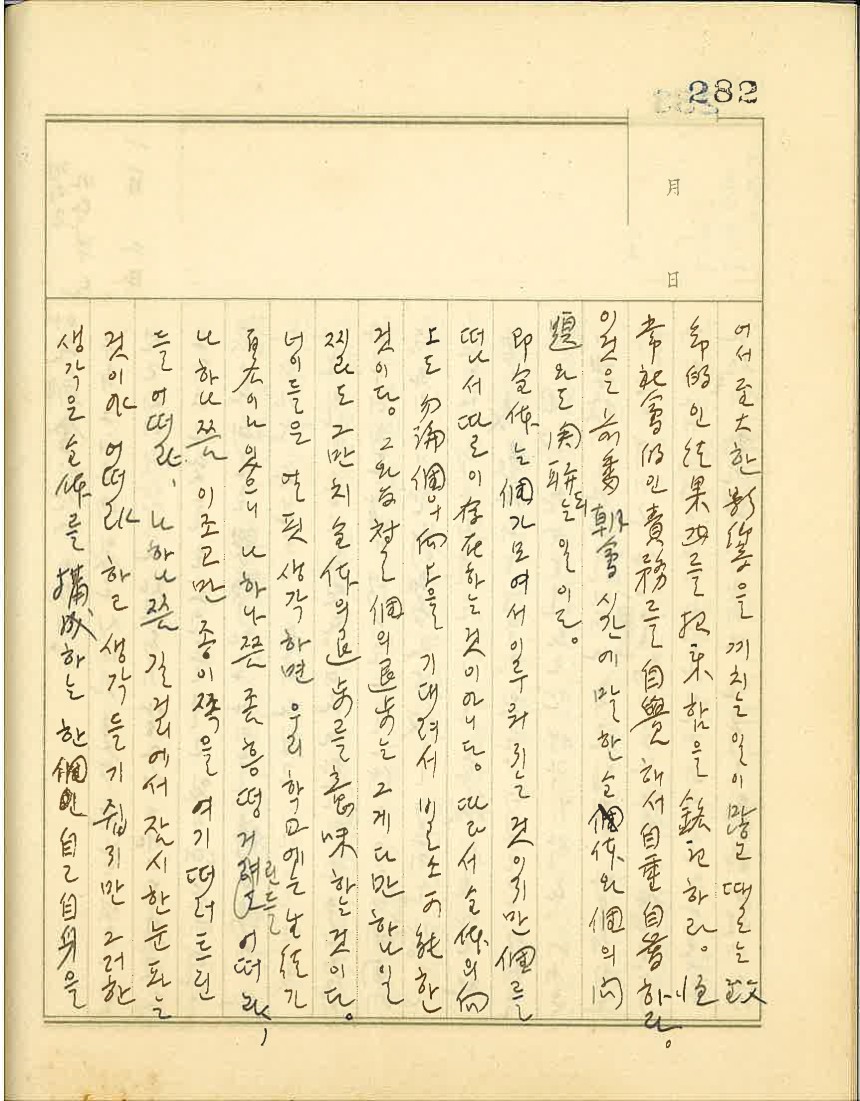 282
月 日
어서 至大한 影響을 끼치는 일이 많고 때로는 致
命的인 結果까를 招來함을 銘記하라。 恒
常 社會的인 責務를 自覺해서 自重自善하라。
이것은 前番 朝會 시간에 말한 全個体와 個의 问
題와도 関聯되는 일이다。
即 全体는 個가 모여서 이루워지는 것이지만 個를
떠나서 따로이 存在하는 것이 아니다。 따라서 全体의 向
上도 勿論 個의 向上을 기대려서 비로소 可能한
것이다。 그와 反対로 個의 退步는 그게 다만 하나일
찌라도 그만치 全体의 退步를 意味하는 것이다。
너이들은 얼핏 생각하면 우리 학교에는 生徒가
많이나 있으니 나 하나쯤 좀 흥떵거린들 어떠랴,
나 하나쯤 이조고만 종이쪽을 여기 떠러트린
들 어떠랴, 나 하나쯤 길거리에서 잠시 한눈 파는
것이야 어떠랴 하고 생각들 기 쉽지만 그러한
생각은 全体를 構成하는 한 個인 自己自身을